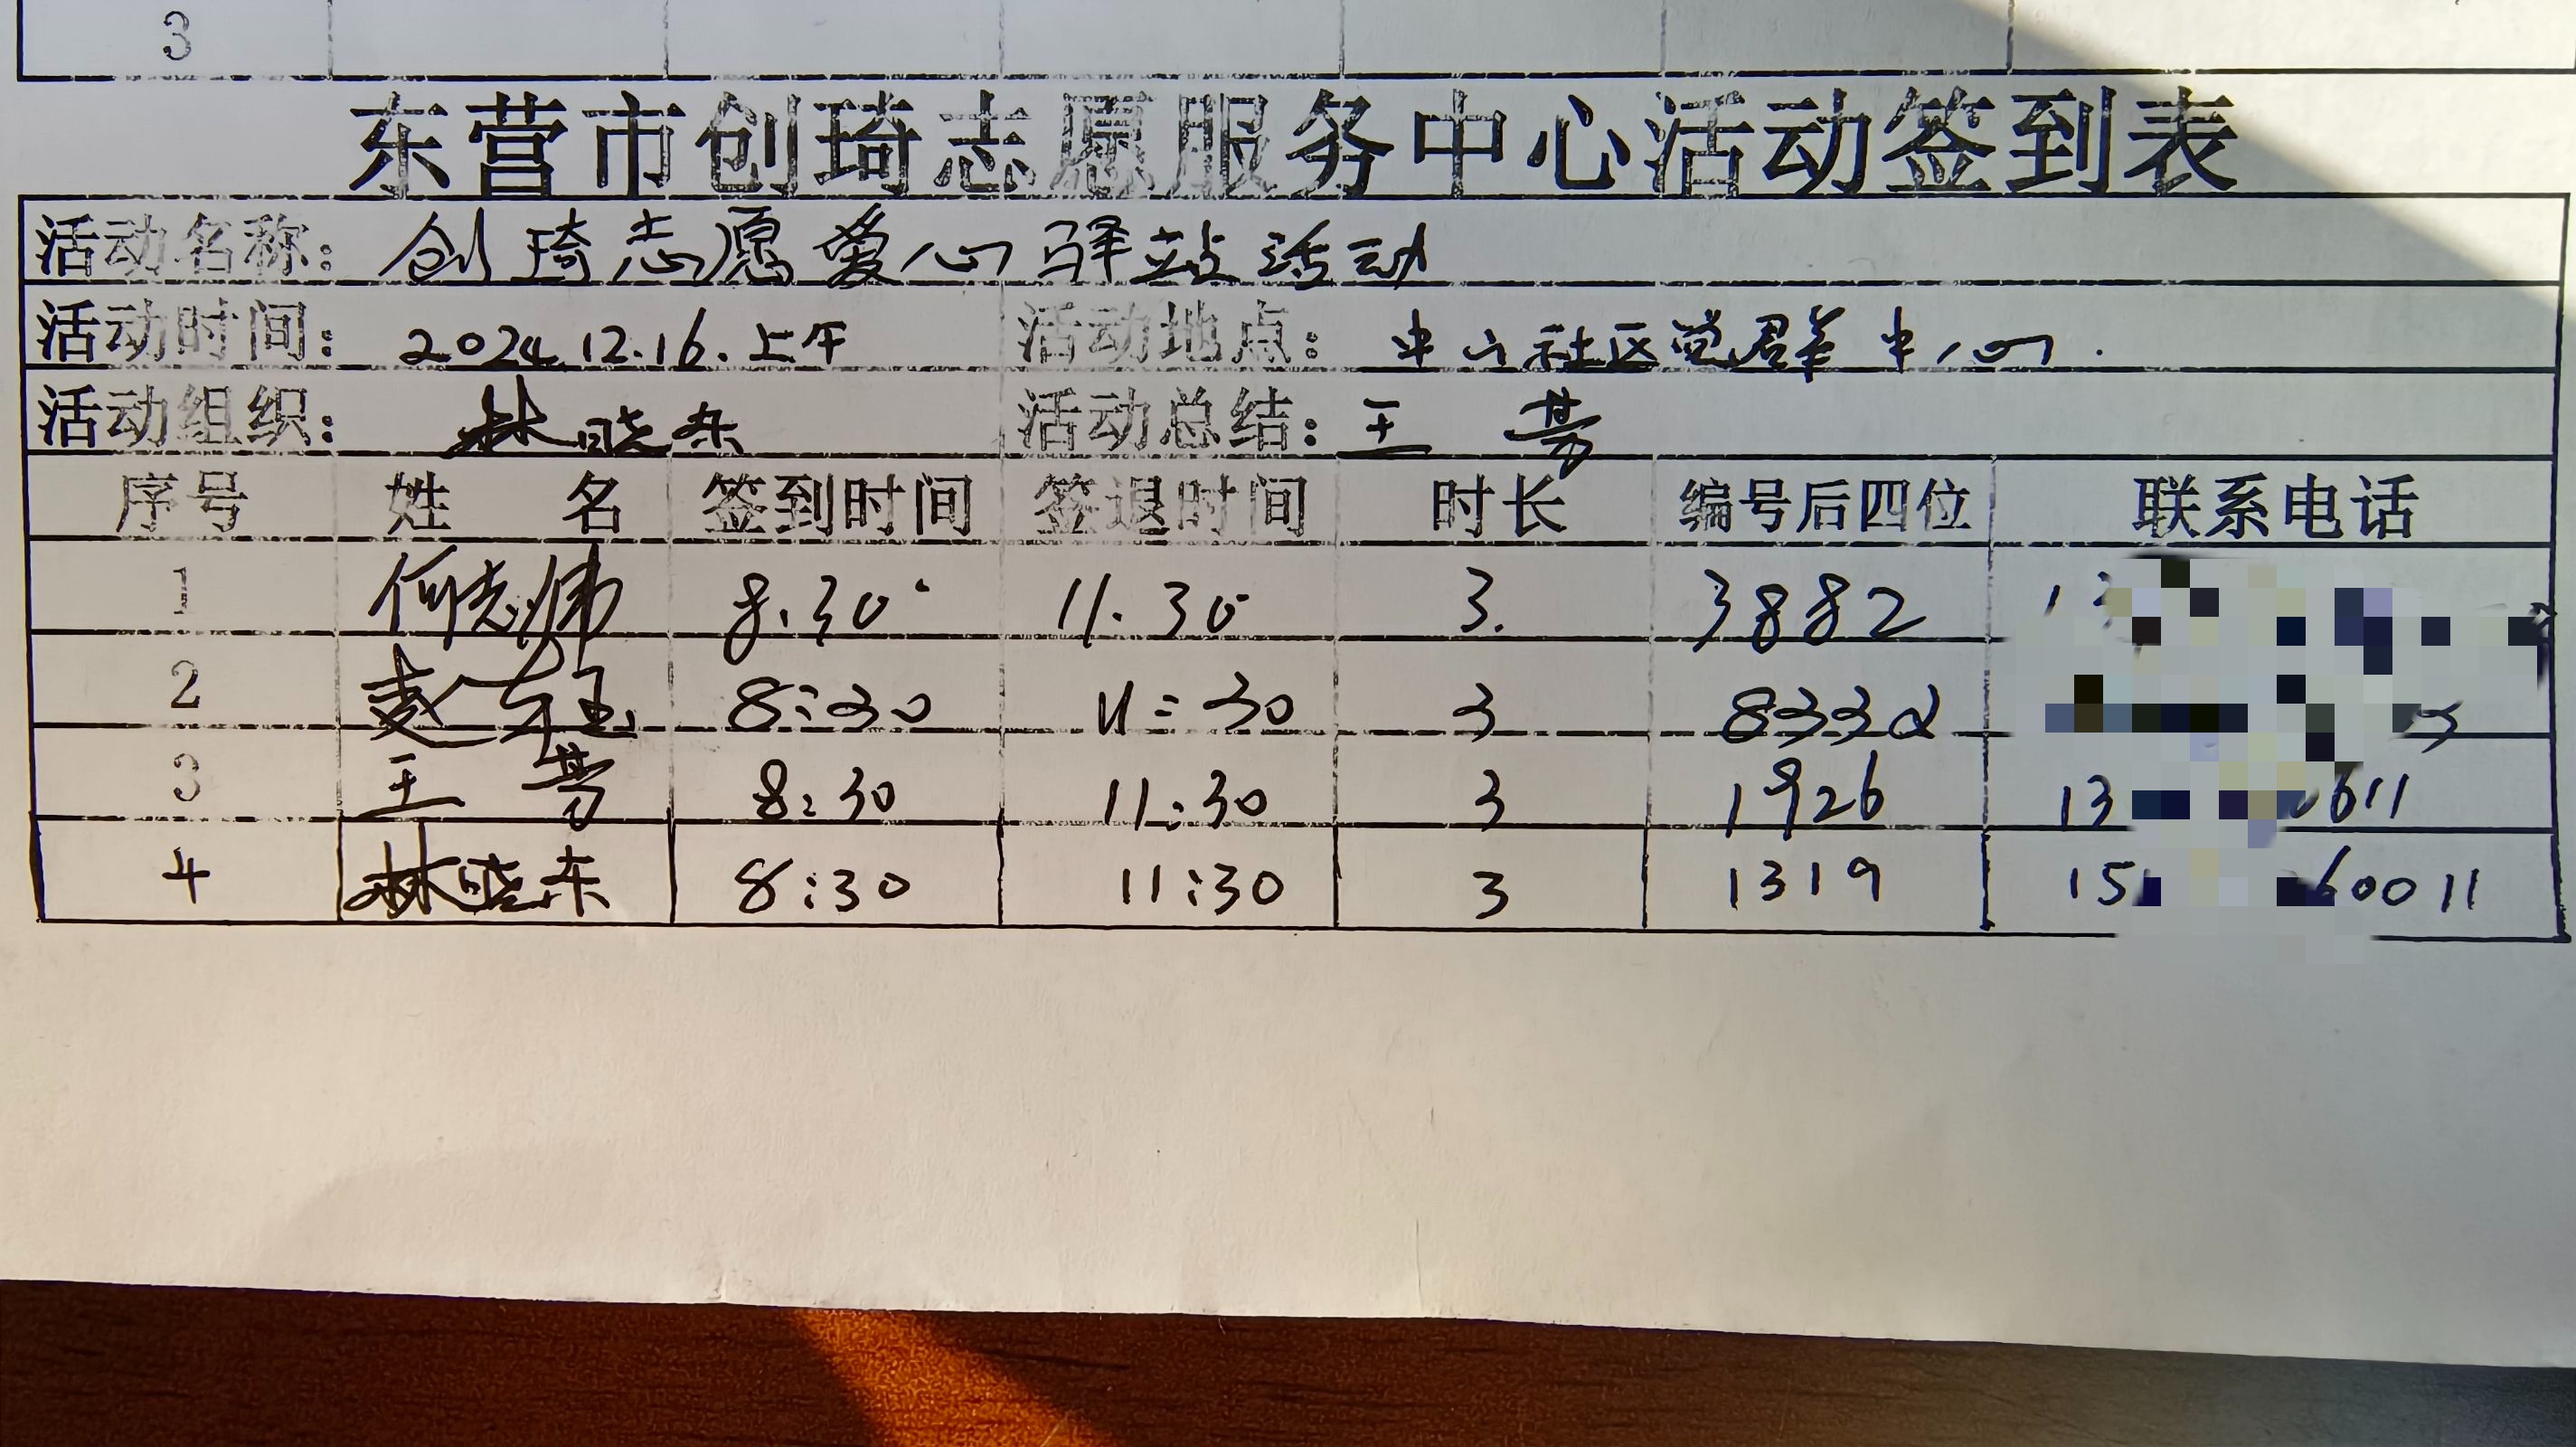 3
东营市创琦志愿服务中心活动签到表
活动名称: 创琦志愿爱心驿站活动
活动时间: 2024.12.16.上午 活动地点: 中山社区党群中心.
活动组织: 林晓东 活动总结: 王芳
序号 姓名 签到时间 签退时间 时长 编号后四位 联系电话
1 何志伟 8.30 11.30 3. 3882
2 赵 8:30 11:30 3 8332
3 王芳 8:30 11:30 3 1926 13 611
4 林晓东 8:30 11:30 3 1319 15 60011